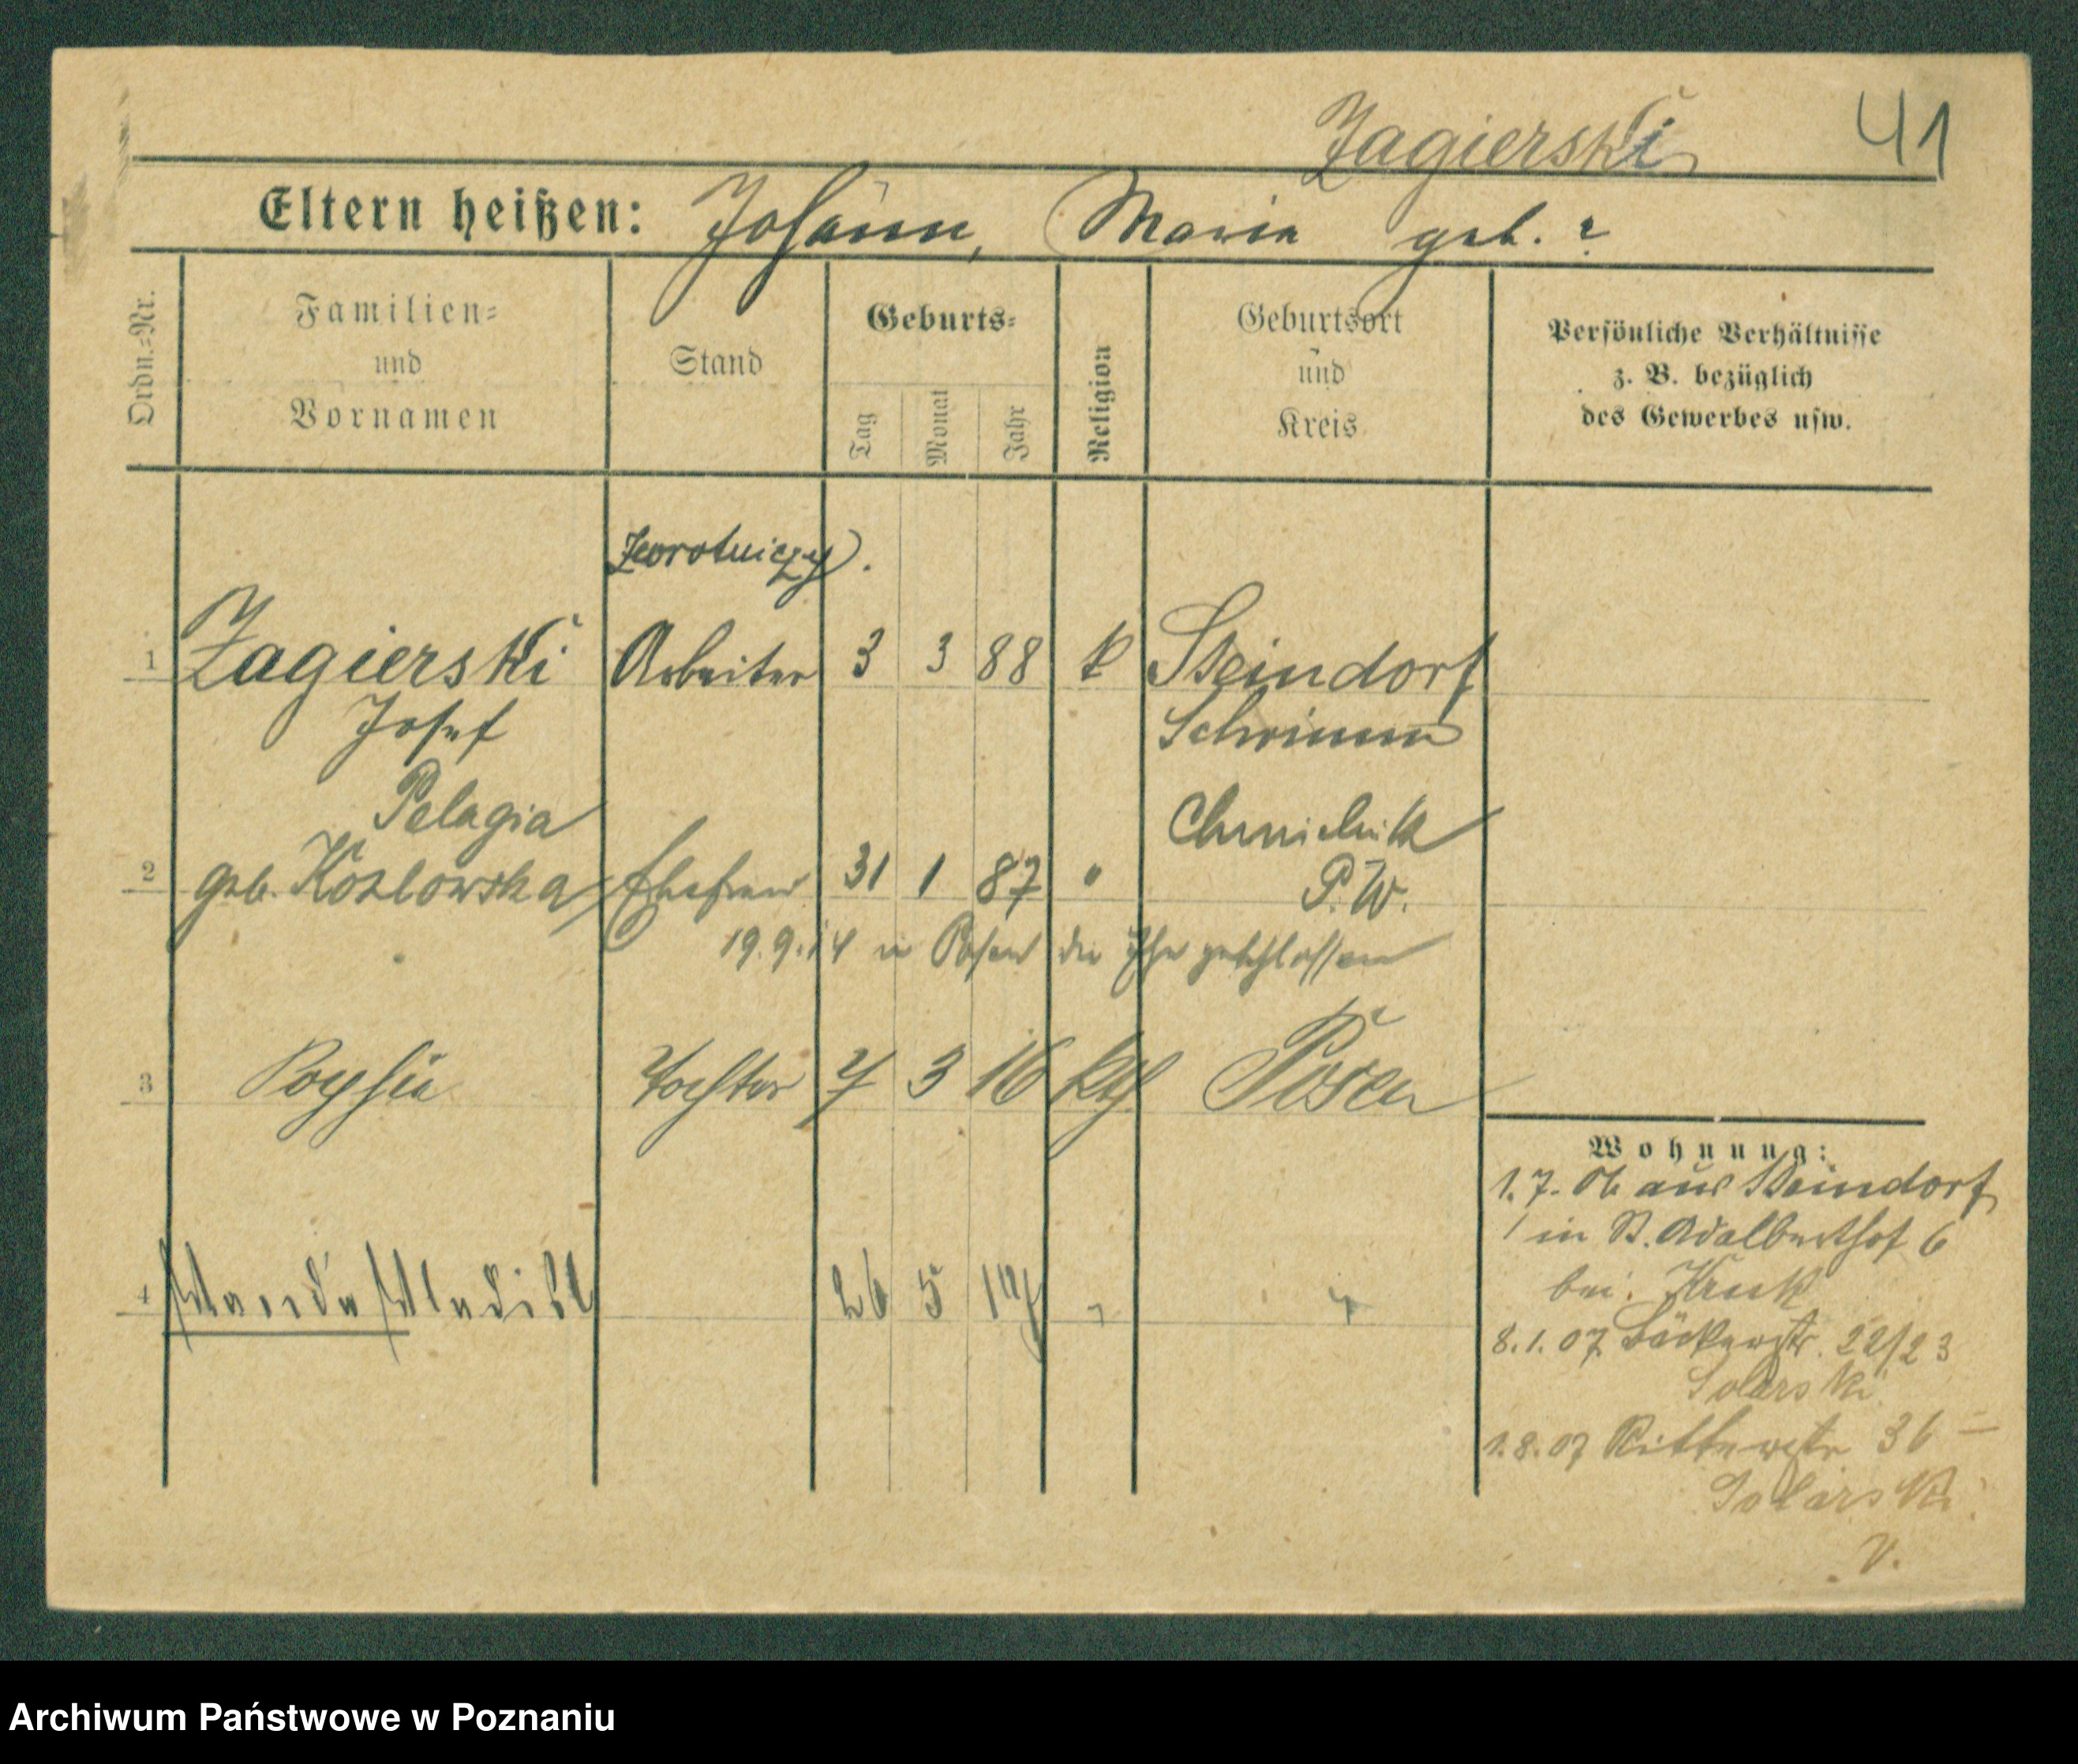 Zagierski 41
Eltern heißen: Johann, Maria geb. ?
Ordn.=Nr.
Familien=
und
Vornamen
Stand
Geburts=
Tag
Monat
Jahr
Religion
Geburtsort
und
Kreis
Persönliche Verhältnisse
z. B. bezüglich
des Gewerbes usw.
Zwrotniczy.
1 Zagierski Arbeiter 3 3 88 k Steindorf
Josef Schrimm
Pelagia Chmielnik
2 geb. Kozlowska Ehefrau 31 1 87 " P. W.
19.9.14 in Posen die Ehe geschlossen
3 Tochter 7 3 16 kth Posen
4 Wanda 26 5 17
Wohnung:
1.7.06 aus Steindorf
in St. Adalberthof 6
bei Kruk
8.1.07 Bäckerstr. 22/23
Solarski
1.8.07 Ritterstr 36
Solarski
V.
Archiwum Państwowe w Poznaniu